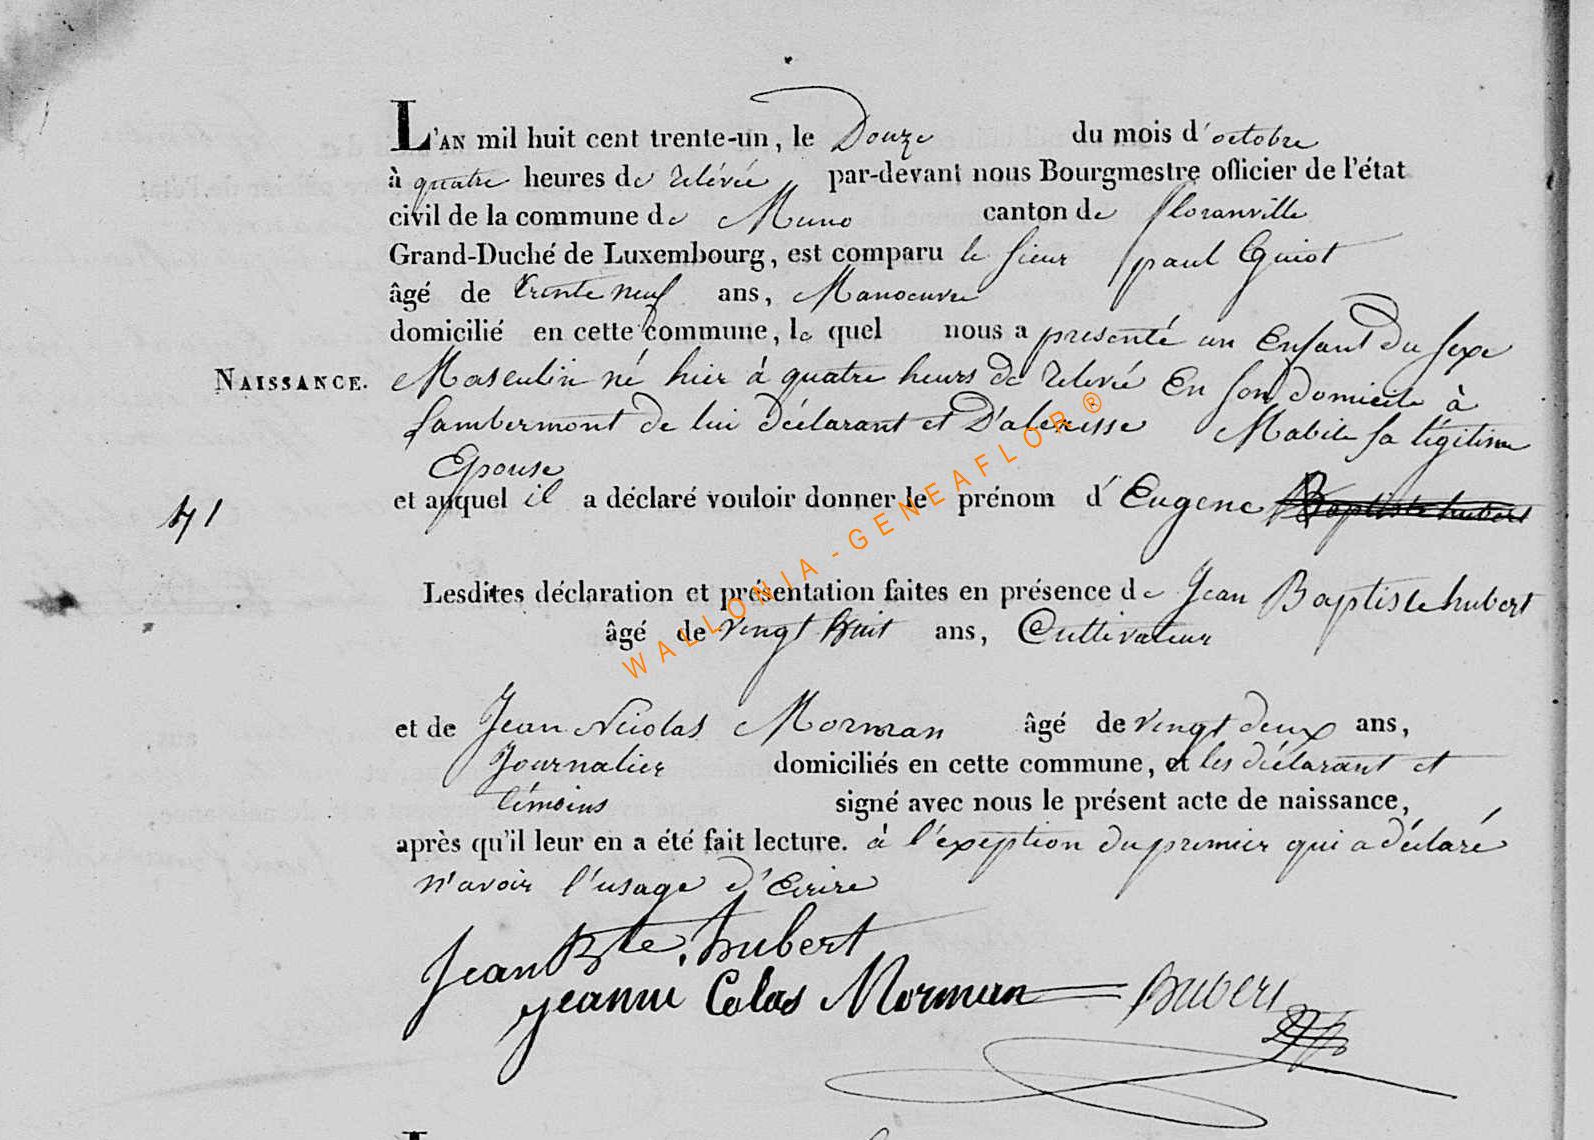 L'AN mil huit cent trente-un, le Douze du mois d'octobre
à quatre heures de relévée par-devant nous Bourgmestre officier de l'état
civil de la commune de Muno canton de floranville
Grand-Duché de Luxembourg, est comparu le sieur paul Guiot
âgé de trente neuf ans, Manoeuvre
domicilié en cette commune, le quel nous a presenté un Enfant du sexe
NAISSANCE. Masculin né hier à quatre heurs de relevée En son domicile à
Lambermont de lui déclarant et D'alexisse Mabile sa légitime
Epouse
et auquel il a déclaré vouloir donner le prénom d'Eugene Baptiste hubert
71
Lesdites déclaration et présentation faites en présence de Jean Baptiste hubert
âgé de vingt huit ans, Cultivateur
et de Jean Nicolas Morman âgé de vingt deux ans,
Journalier domiciliés en cette commune, et les déclarant et
témoins signé avec nous le présent acte de naissance,
après qu'il leur en a été fait lecture. à l'exeption du premier qui a déclaré
n'avoir l'usage d'Ecrire
Jean Bte. hubert
jeanni Colas Morman hubert
WALLONIA-GENEAFLOR ®